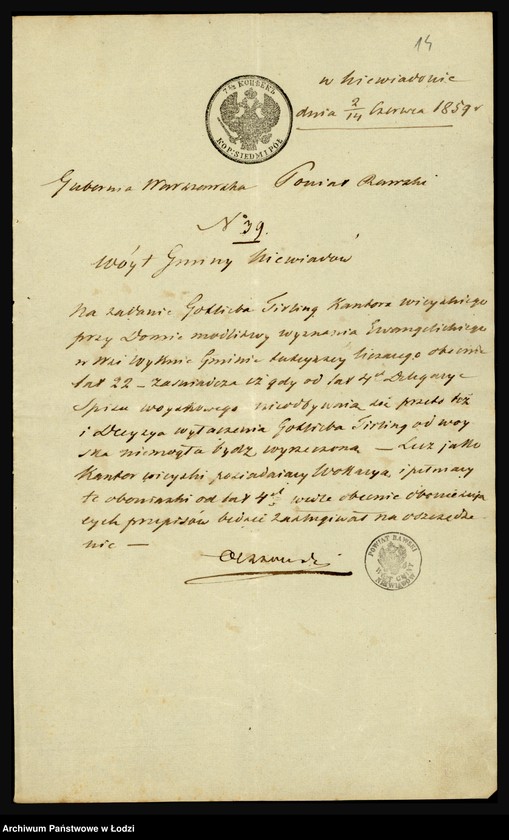 14
7½ КОПѢЕКЪ
KOP. SIEDM I PÓŁ
w Niewiadowie
dnia 2/14 Czerwca 1859 r
Gubernia Warszawska Powiat Rawski
N° 39.
Wóyt Gminy Niewiadów
Na żądanie Gottlieba Tirling Kantora wieyskiego
przy Domie modlitwy wyznania Ewangelickiego
w Wsi Wyknie Gminie tuteyszey liczącego obecnie
lat 22 – zaświadcza iż gdy od lat 4ch Delegacye
Spisu woyskowego nieodbywaią się przeto też
i Decyzya wyłączenia Gottlieba Tirling od woy
ska niemogła bydz wyrzeczona – Lecz jako
Kantor wieyski posiadaiący Wokacyą i pełniący
te obowiązki od lat 4ch wedle obecnie obowiązują
cych przepisów będzie zasługiwał na oszczędze
nie —
POWIAT RAWSKI
WÓYT GMINY
NIEWIADÓW
Archiwum Państwowe w Łodzi